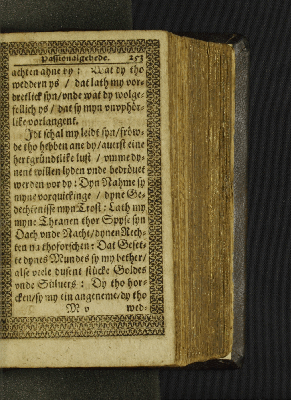 Passionalgebede. 253
achten ahne dy : Wat dy tho
weddern ys / dat lath my vor-
dretlick syn / vnde wat dy wolge-
fellich ys / dat sy myn vnvphör-
like vorlangent.
Jdt schal my leidt syn / fröw-
de tho hebben ane dy / auerst eine
hertgründtlike lust / vmme dy-
nent willen lyden vnde bedröuet
werden vor dy : Dyn Nahme sy
myne vorquickinge / dyne Ge-
dechtenisse myn Trost : Lath my
myne Thranen thor Spyse syn
Dach vnde Nacht / dynen Rech-
ten na thoforschen : Dat Geset-
te dynes Mundes sy my bether /
alse veele dusent stücke Goldes
vnde Süluers : Dy tho hor-
cken / sy my ein angeneme / dy tho
M v wed-